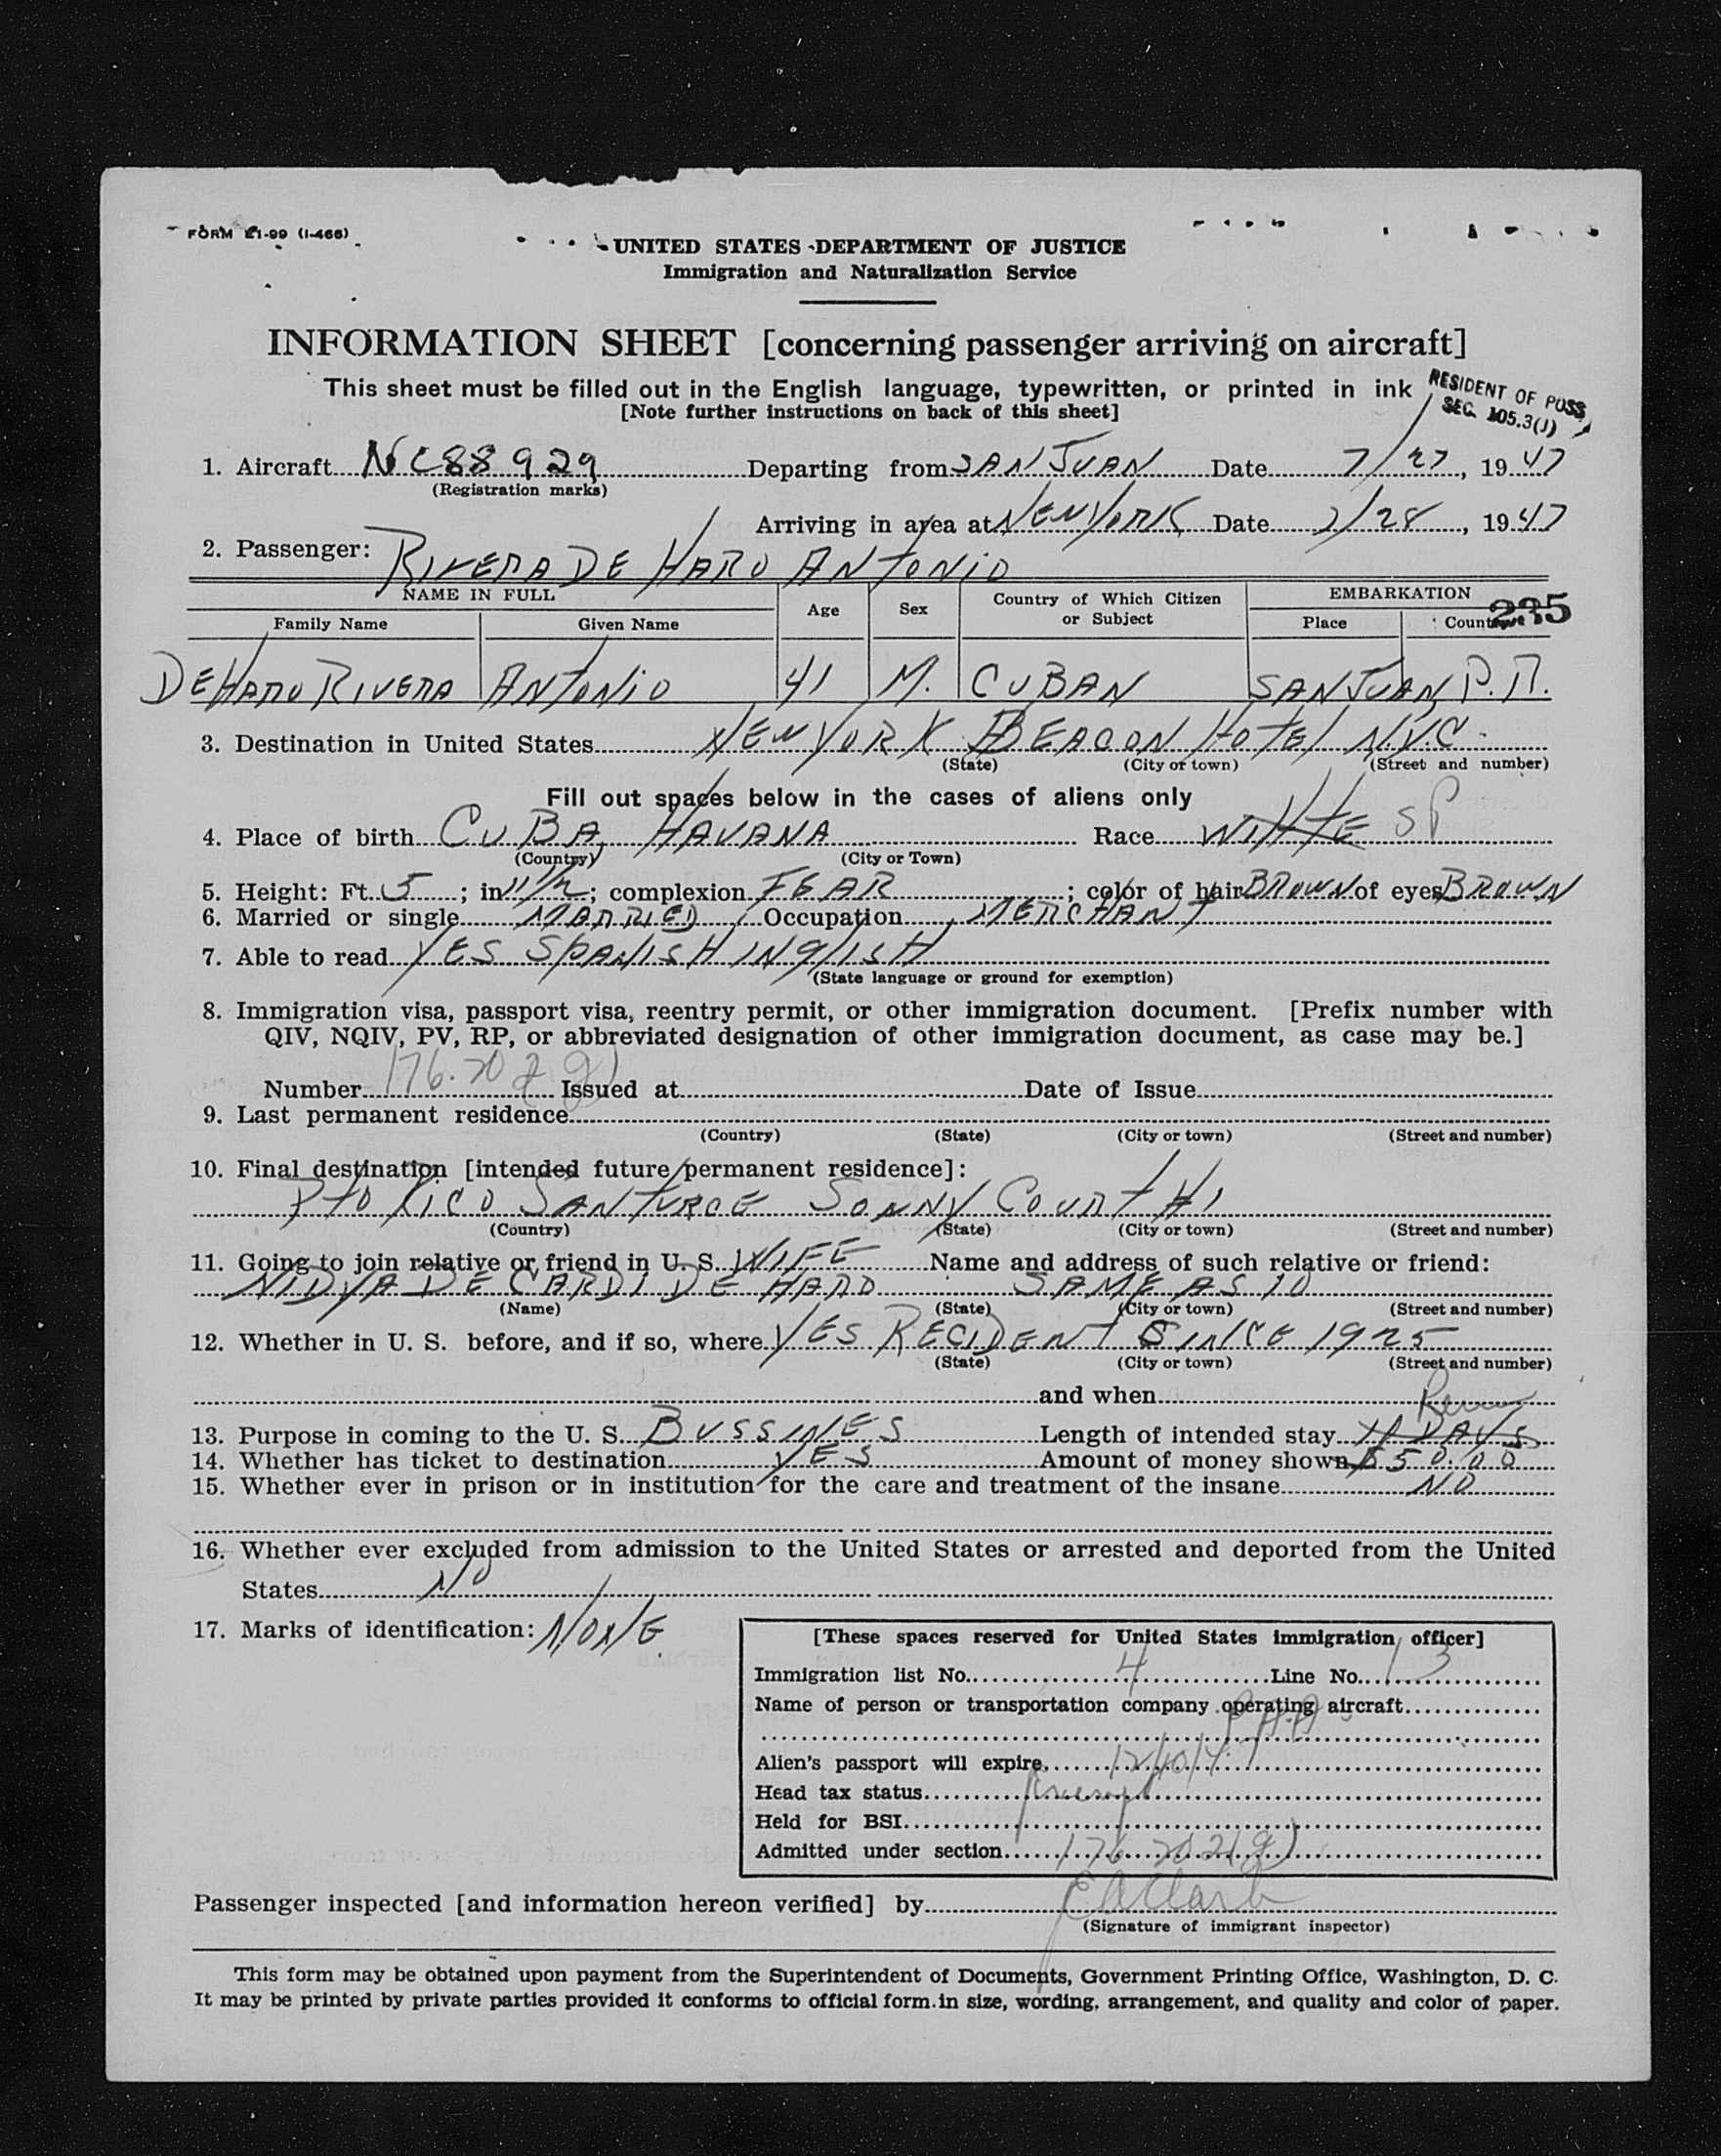 FORM E1-99 (I-466)
UNITED STATES DEPARTMENT OF JUSTICE
Immigration and Naturalization Service
INFORMATION SHEET [concerning passenger arriving on aircraft]
This sheet must be filled out in the English language, typewritten, or printed in ink
[Note further instructions on back of this sheet]
RESIDENT OF POSS
SEC. 105.3(J)
1. Aircraft NC88929 Departing from SAN JUAN Date 7/27, 1947
(Registration marks)
Arriving in area at NEW YORK Date 7/28, 1947
2. Passenger: RIVERA DE HARO ANTONIO
NAME IN FULL Age Sex Country of Which Citizen or Subject EMBARKATION
Family Name Given Name Place Country
235
DE HARO RIVERA ANTONIO 41 M. CUBAN SAN JUAN, P.R.
3. Destination in United States NEW YORK BEACON HOTEL N.Y.C.
(State) (City or town) (Street and number)
Fill out spaces below in the cases of aliens only
4. Place of birth CUBA, HAVANA Race WHITE SP
(Country) (City or Town)
5. Height: Ft. 5; in 11 1/2; complexion FEAR; color of hair BROWN of eyes BROWN
6. Married or single MARRIED Occupation MERCHANT
7. Able to read YES SPANISH INGLISH
(State language or ground for exemption)
8. Immigration visa, passport visa, reentry permit, or other immigration document. [Prefix number with
QIV, NQIV, PV, RP, or abbreviated designation of other immigration document, as case may be.]
Number 176.202(g) Issued at Date of Issue
9. Last permanent residence
(Country) (State) (City or town) (Street and number)
10. Final destination [intended future permanent residence]:
PTO RICO SANTURCE SONNY COURT #1
(Country) (State) (City or town) (Street and number)
11. Going to join relative or friend in U. S. WIFE Name and address of such relative or friend:
NIDYA DE CARDI DE HARO SAME AS 10
(Name) (State) (City or town) (Street and number)
12. Whether in U. S. before, and if so, where YES RECIDENT SINCE 1925
(State) (City or town) (Street and number)
and when
13. Purpose in coming to the U. S. BUSSINES Length of intended stay DAYS
14. Whether has ticket to destination YES Amount of money shown $50.00
15. Whether ever in prison or in institution for the care and treatment of the insane NO
16. Whether ever excluded from admission to the United States or arrested and deported from the United
States NO
17. Marks of identification: NONE
[These spaces reserved for United States immigration officer]
Immigration list No. 4 Line No. 13
Name of person or transportation company operating aircraft
P.A.A.
Alien's passport will expire
Head tax status
Held for BSI
Admitted under section 176.202(g)
Passenger inspected [and information hereon verified] by EA Clark
(Signature of immigrant inspector)
This form may be obtained upon payment from the Superintendent of Documents, Government Printing Office, Washington, D. C.
It may be printed by private parties provided it conforms to official form in size, wording, arrangement, and quality and color of paper.